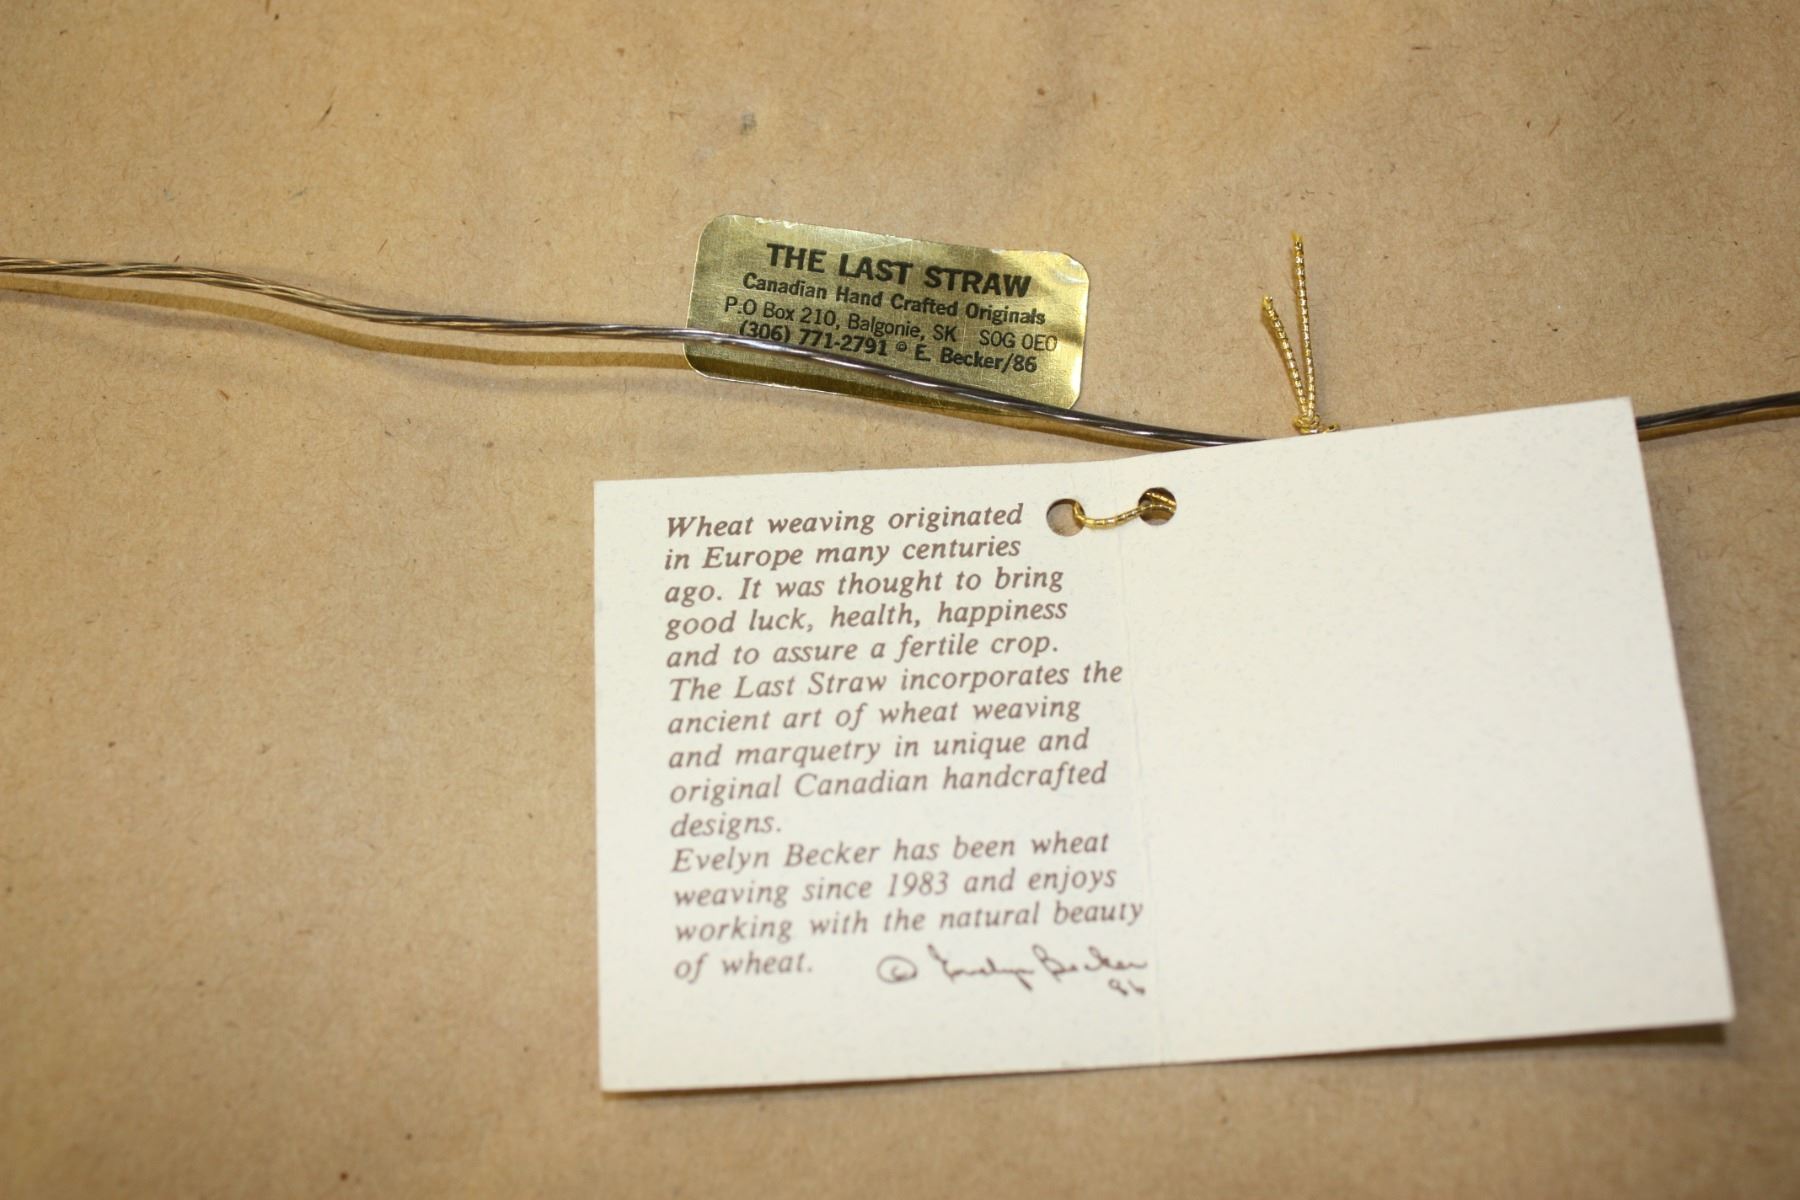 THE LAST STRAW
Canadian Hand Crafted Originals
P.O Box 210, Balgonie, SK SOG OEO
(306) 771-2791 © E. Becker/86
Wheat weaving originated
in Europe many centuries
ago. It was thought to bring
good luck, health, happiness
and to assure a fertile crop.
The Last Straw incorporates the
ancient art of wheat weaving
and marquetry in unique and
original Canadian handcrafted
designs.
Evelyn Becker has been wheat
weaving since 1983 and enjoys
working with the natural beauty
of wheat. © Evelyn Becker
86